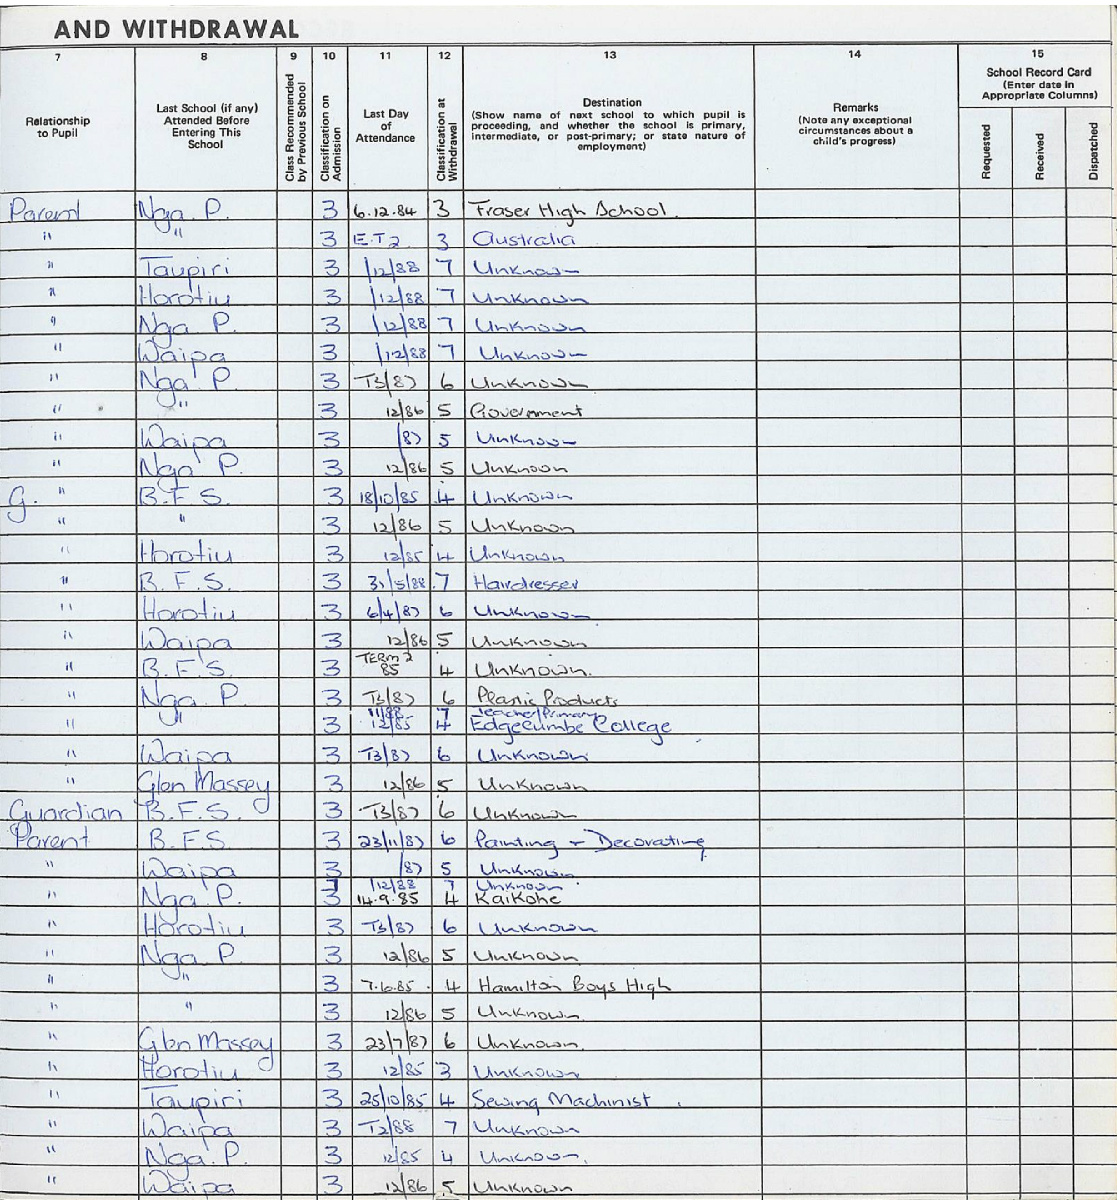 AND WITHDRAWAL
7 8 9 10 11 12 13 14 15
Relationship to Pupil
Last School (if any) Attended Before Entering This School
Class Recommended by Previous School
Classification on Admission
Last Day of Attendance
Classification at Withdrawal
Destination (Show name of next school to which pupil is proceeding, and whether the school is primary, intermediate, or post-primary; or state nature of employment)
Remarks (Note any exceptional circumstances about a child's progress)
School Record Card (Enter date in Appropriate Columns)
Requested Received Dispatched
Parent Nga P. 3 6.12.84 3 Fraser High School
" " 3 E.T2 3 Australia
" Taupiri 3 /12/88 7 Unknown
" Horotiu 3 /12/88 7 Unknown
" Nga P. 3 /12/88 7 Unknown
" Waipa 3 /12/88 7 Unknown
" Nga P. 3 T3/87 6 Unknown
" " 3 12/86 5 Government
" Waipa 3 /87 5 Unknown
" Nga P. 3 12/86 5 Unknown
G. " B.F.S. 3 18/10/85 4 Unknown
" " 3 12/86 5 Unknown
" Horotiu 3 12/85 4 Unknown
" B.F.S. 3 31/5/88 7 Hairdresser
" Horotiu 3 6/4/87 6 Unknown
" Waipa 3 12/86 5 Unknown
" B.F.S. 3 TERM 2 85 4 Unknown.
" Nga P. 3 T3/87 6 Plastic Products
11/88 7 Teacher/Primary
" " 3 12/85 4 Edgecumbe College
" Waipa 3 T3/87 6 Unknown
" Glen Massey 3 12/86 5 Unknown
Guardian B.F.S. 3 T3/87 6 Unknown
Parent B.F.S 3 23/11/87 6 Painting + Decorating
" Waipa 3 /87 5 Unknown
/12/88 7 Unknown
" Nga P. 3 14.9.85 4 Kaikohe
" Horotiu 3 T3/87 6 Unknown
" Nga P. 3 12/86 5 Unknown
" " 3 7.6.85 4 Hamilton Boys High
" " 3 12/86 5 Unknown
" Glen Massey 3 23/7/87 6 Unknown
" Horotiu 3 12/85 3 Unknown
" Taupiri 3 25/10/85 4 Sewing Machinist
" Waipa 3 T2/88 7 Unknown
" Nga P. 3 12/85 4 Unknown.
" Waipa 3 12/86 5 Unknown